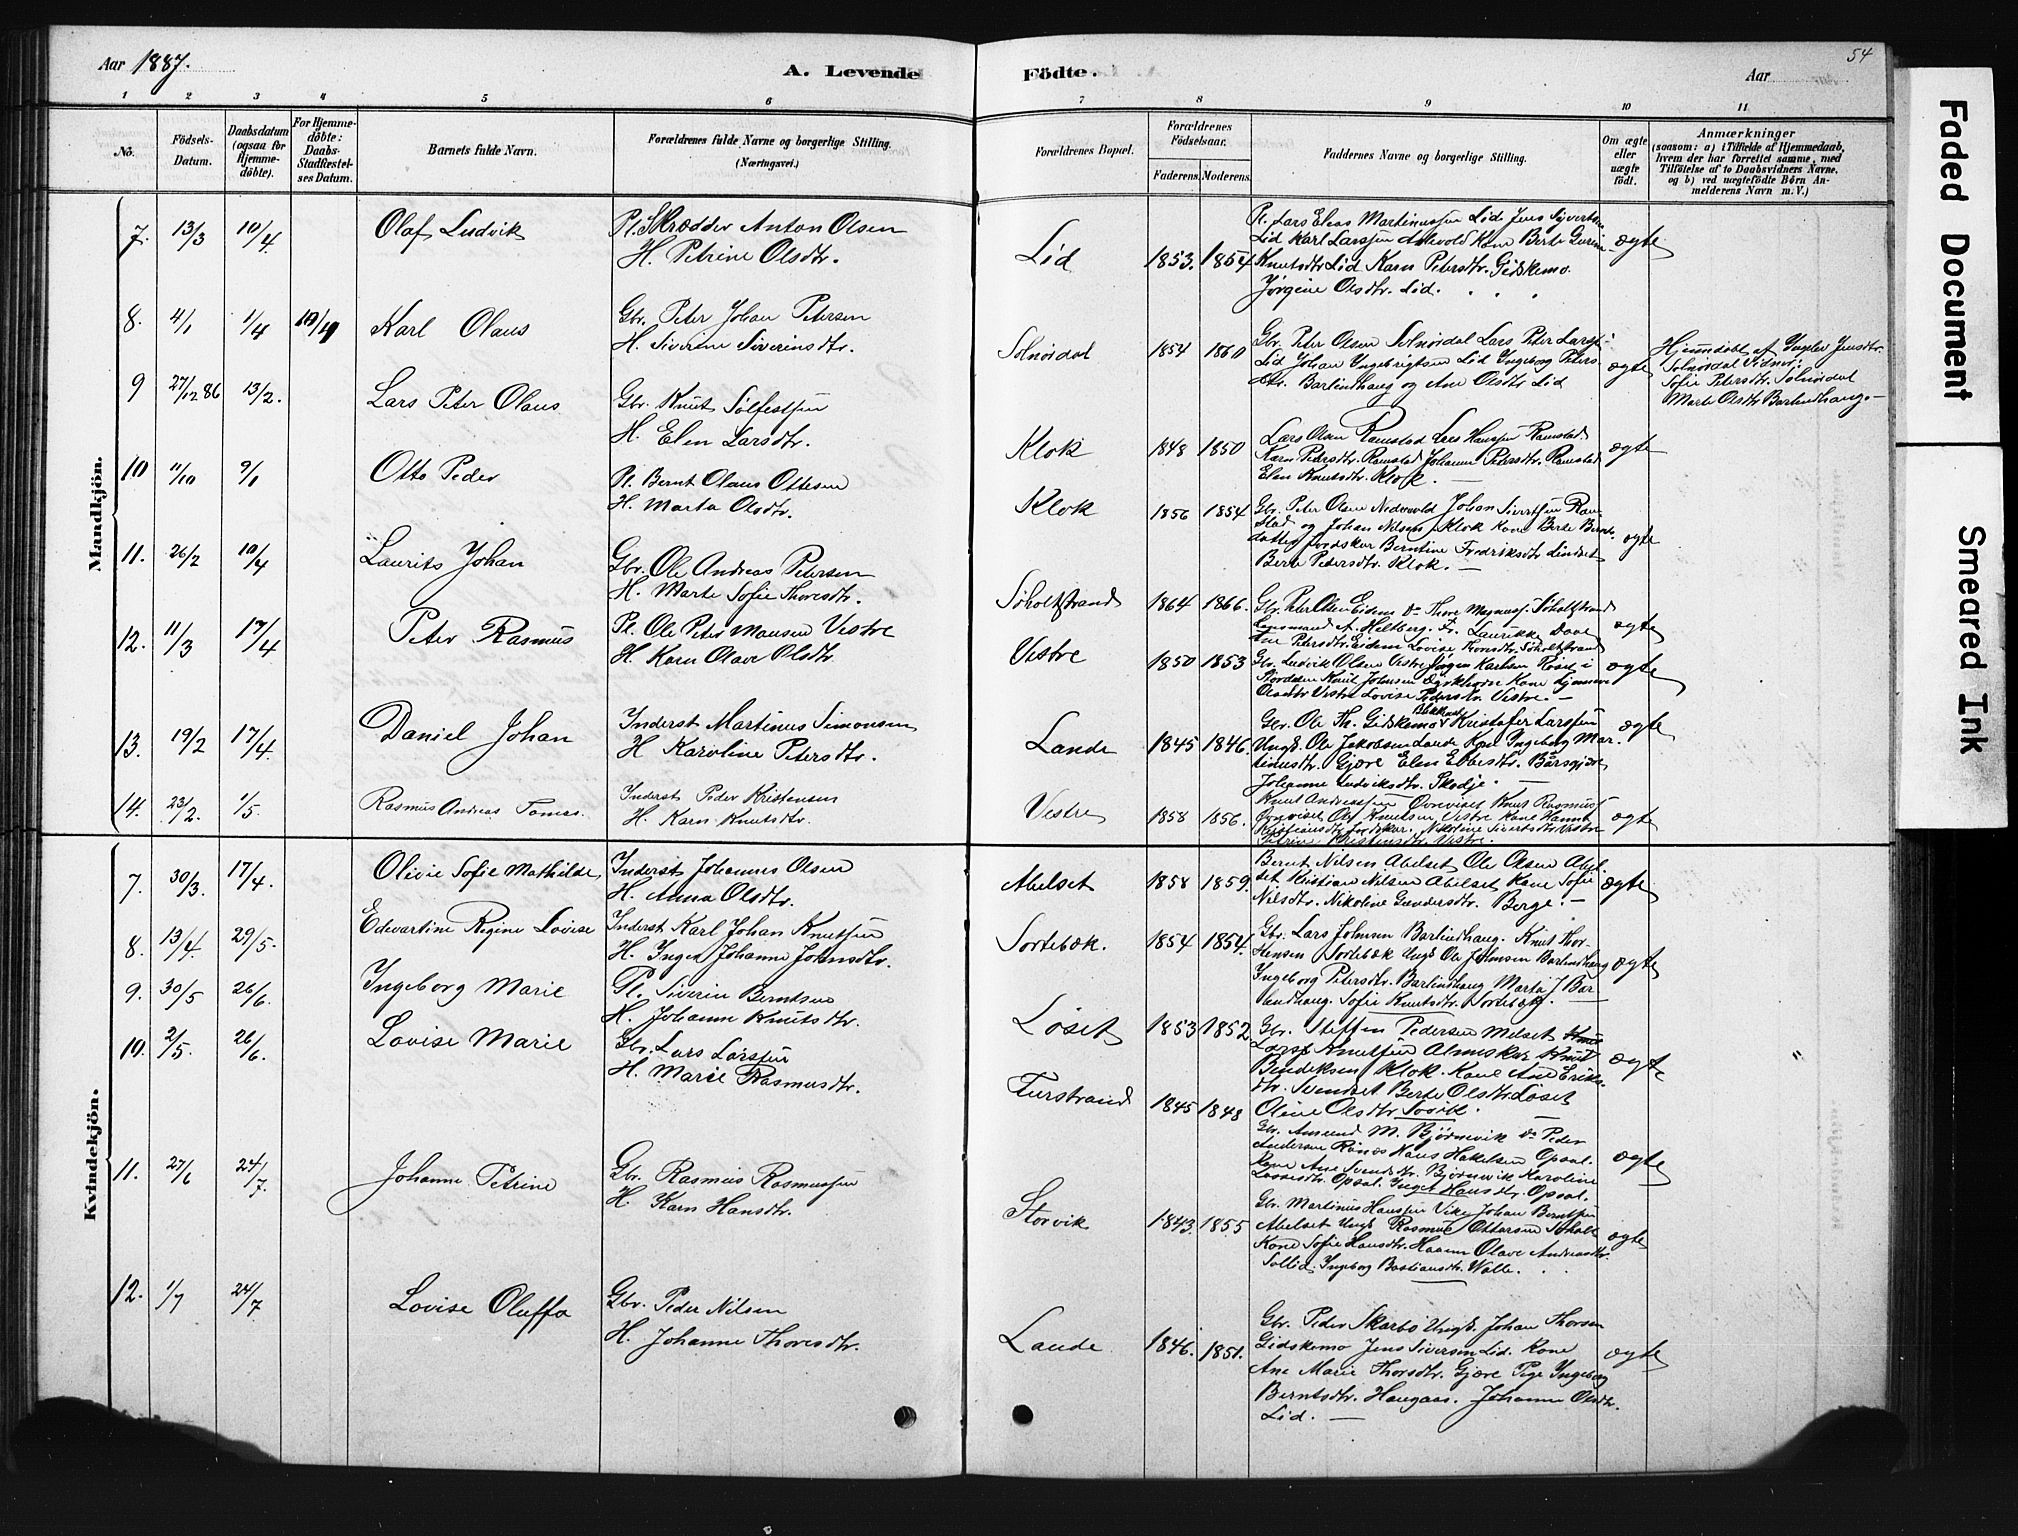 Aar 1887.
A. Levende Födte.
Aar
54
1 2 3 4 5 6 7 8 9 10 11
No.
Födsels-Datum.
Daabsdatum (ogsaa for Hjemme-döbte).
For Hjemme-döbte: Daabs-Stadfæstel-ses Datum.
Barnets fulde Navn.
Forældrenes fulde Navne og borgerlige Stilling. (Næringsvei.)
Forældrenes Bopæl.
Forældrenes Födselsaar.
Faderens. Moderens.
Faddernes Navne og borgerlige Stilling.
Om ægte eller uægte födt.
Anmærkninger
(saasom: a) i Tilfælde af Hjemmedaab, hvem der har forrettet samme, med Tilföielse af to Daabsvidners Navne, og b) ved uægtefödte Börn An-melderens Navn m. V.)
Mandkjön.
7. 13/3 10/4 Olaf Ludvik Pl. Skrædder Anton Olsen
H. Petrine Olsdtr.
Lid 1853. 1854 ægte
Pl. Lars Elias Martinussen Lid Jens Sivertsen
Lid Karl Larssen Kone Berte
Knutsdtr Lid Karn Petersdtr. Gidskemo.
Jørgine Olsdtr. Lid.
8. 4/1 1/4 10/4 Karl Olaus Gbr. Peter Johan Petersen
H. Siverine Siverinsdtr.
Solnørdal 1854 1860 ægte
Gbr. Peter Olsen Solnørdal Lars Peter Larss:
Lid Johan Ingebrigtsen Lid Ingeborg Peters
dtr. Barlindhaug og Ane Olsdtr Lid
Hjemdøbt af Jensdtr.
Solnørdal Vidner:
Sofie Petersdtr. Solnørdal
Marte Olsdtr Barlindhaug.
9 27/12 86 13/2. Lars Peter Olaus Gbr. Knut Sølfestsen
H. Elen Larsdtr.
Klok 1848 1850 ægte
Lars Olsen Ramstad Hanssen Ramstad
Karn Petersdtr. Ramstad Johanne Petersdtr. Ramstad
Elen Knutsdtr. Klok.
10 11/10 9/1 Otto Peder Pl. Bernt Olaus Ottesen
H. Marta Olsdtr.
Klok 1856 1854 ægte
Gbr. Peter Olsen Johan Sivertsen Ram
stad og Johan Nilsen Klok Kone Berte Bernts
datter Berntine Fredriksdtr. Lindset
Berte Pedersdtr. Klok.
11. 26/2 10/4 Laurits Johan Gbr. Ole Andreas Petersen
H. Marte Sofie Thoresdtr.
Søholtstrand 1864 1866. ægte
Gbr. Peter Olsen Eidem Do Thore Magnuss. Søholtstrand
Lensmand A. Heltberg. Fr. Laurikke Daae
Ane Petersdtr. Eidem Lovise Søholtstrand
12. 11/3 17/4 Peter Rasmus Pl. Ole Peter Monsen Vestre
H. Karn Olave Olsdtr
Vestre 1850 1853 ægte
Gbr. Ludvik Olsen Vestre Jørgen Karlsen Røset i
Stordalen Knut Johnsen Kone
Olsdtr Vestre Lovise Pedersdtr. Vestre.
13. 19/2 17/4. Daniel Johan Inderst Martinus Simonsen
H Karoline Petersdtr.
Lande 1845 1846. ægte
Gbr. Ole Th. Gidskemo Kristofer Larssen
Ungk. Ole Jakobsen Lande Kone Ingeborg Mar
tinusdtr. Gjære Elen
Johanne Ludviksdtr. Skodje.
14. 23/2. 1/5. Rasmus Andreas Tomas Inderst Peder Kristensen
H. Karn Knutsdtr.
Vestre 1858 1856. ægte
Knut Andreassen Knut Rasmuss.
Ole Knutsen Vestre Kone Hanna
Kristiansdtr. Nikoline Sivertsdtr. Vestre
Petrine Kristensdtr. Vestre.
Kvindekjön.
7. 30/3. 17/4. Olivie Sofie Mathilde Inderst Johannes Olsen
H. Anna Olsdtr.
Abelset 1858 1859. ægte
Bernt Nilsen Abelset Ole Olsen Abel
set Kristian Nilsen Abelset Kone Sofie
Nilsdtr. Nikoline Gundersdtr. Berge.
8. 13/4. 29/5. Edevartine Regine Lovise Inderst Karl Johan Knutsen
H. Inger Johanne Johnsdtr.
Sortebæk. 1854 1854. ægte
Gbr. Lars Johnsen Barlindhaug. Knut Thor-
stensen Sortebæk Ungk Ole Johnsen Barlindhaug
Ingeborg Petersdtr. Barlindhaug Marta J Bar
lindhaug. Sofie Knutsdtr. Sortebæk.
9. 30/5 26/6. Ingeborg Marie Pl. Siverin Berntsen
H. Johanne Knutsdtr.
Løset 1853 1852 ægte
Gbr. Steffen Pedersen Melset
Lars Knutsen Almskar Knut
Bendiksen Klok. Kone Ane Eriks
dtr. Svendset Berte Olsdtr Løset
Oline Olsdtr
10. 2/5. 26/6. Lovise Marie Gbr. Lars Larssen
H. Marie Rasmusdtr.
Furstrand 1845 1848 ægte
Gbr. Amund M. Bjørnevik Do Peder
Andersen Rønes Hans Hakelsen Opsal.
Kone Ane Svendsdtr. Bjørnevik Karoline
Lassedtr. Opsal. Inger Hansdtr. Opsal.
11. 27/6 24/7. Johanne Petrine Gbr. Rasmus Rasmussen
H. Karn Hansdtr.
Storvik 1843. 1855 ægte
Gbr. Martinus Hanssen Vike Johan Berntsen
Abelset Ungk Rasmus Ottersen Søholt
Kone Sofie Hansdtr. Haaem Olave Andreasdtr.
Sollid. Ingeborg Bastiansdtr. Walle.
12. 1/7 24/7 Lovise Oluffa Gbr. Peder Nilsen
H. Johanne Thoresdtr.
Lande 1846. 1851. ægte
Gbr. Peder Skarbø Ungk. Johan Thorsen
Gidskemo Jens Siversen Lid. Kone
Ane Marie Thorsdtr. Gjære Pige Ingeborg
Berntsdtr. Haugaas. Johanne Olsdtr.
Lid.
Faded Document
Smeared Ink